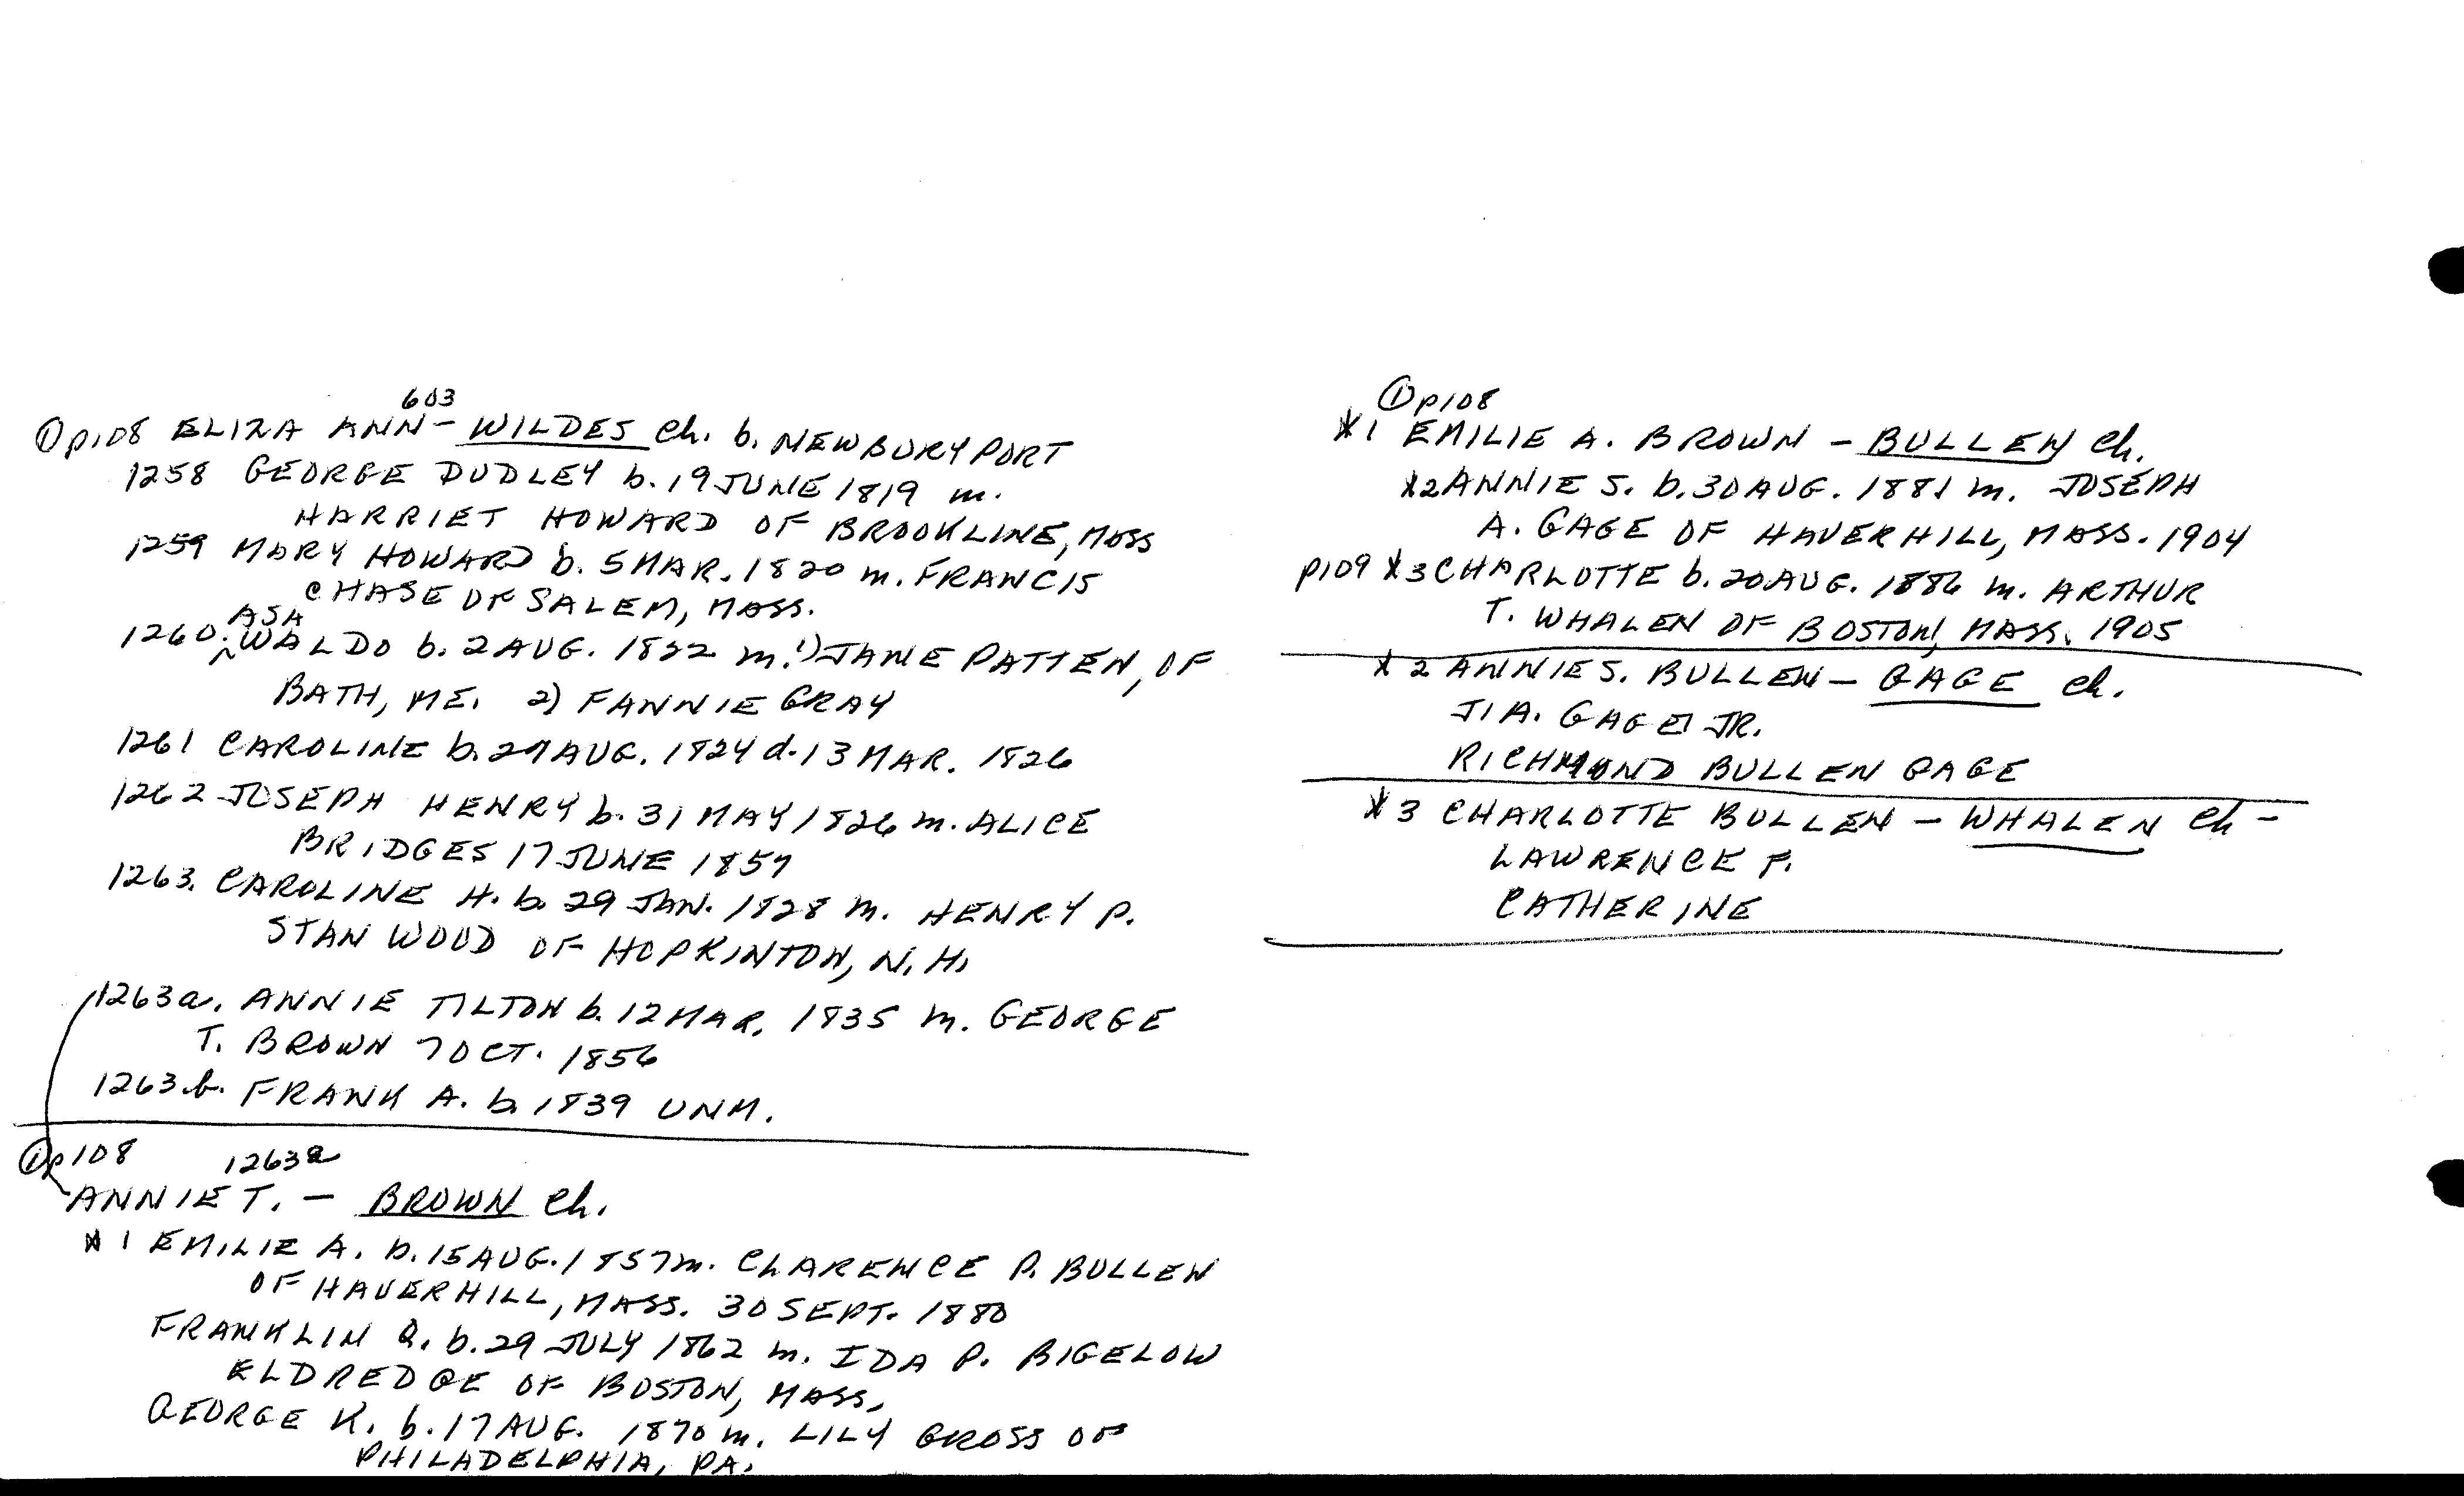 603
① p108 ELIZA ANN - WILDES Ch. b. NEWBURYPORT
1258 GEORGE DUDLEY b. 19 JUNE 1819 m.
HARRIET HOWARD OF BROOKLINE, MASS
1259 MARY HOWARD b. 5 MAR. 1820 m. FRANCIS
CHASE OF SALEM, MASS.
ASA
1260. ^WALDO b. 2 AUG. 1822 m. 1) JANE PATTEN, OF
BATH, ME. 2) FANNIE GRAY
1261 CAROLINE b. 27 AUG. 1824 d. 13 MAR. 1826
1262 JOSEPH HENRY b. 31 MAY 1826 m. ALICE
BRIDGES 17 JUNE 1857
1263. CAROLINE H. b. 29 JAN. 1828 m. HENRY P.
STANWOOD OF HOPKINTON, N.H.
1263a. ANNIE TILTON b. 12 MAR. 1835 m. GEORGE
T. BROWN 7 OCT. 1856
1263.b. FRANK A. b. 1839 UNM.
① p108 1263a
ANNIE T. - BROWN Ch.
*1 EMILIE A. b. 15 AUG. 1857 m. CLARENCE P. BULLEN
OF HAVERHILL, MASS. 30 SEPT. 1880
FRANKLIN G. b. 29 JULY 1862 m. IDA P. BIGELOW
ELDREDGE OF BOSTON, MASS.
GEORGE K. b. 17 AUG. 1870 m. LILY GROSS OF
PHILADELPHIA, PA.
① p108
*1 EMILIE A. BROWN - BULLEN Ch.
*2 ANNIE S. b. 30 AUG. 1881 m. JOSEPH
A. GAGE OF HAVERHILL, MASS. 1904
p109 *3 CHARLOTTE b. 20 AUG. 1886 m. ARTHUR
T. WHALEN OF BOSTON, MASS. 1905
*2 ANNIE S. BULLEN - GAGE Ch.
J. A. GAGE JR.
RICHMOND BULLEN GAGE
*3 CHARLOTTE BULLEN - WHALEN Ch -
LAWRENCE F.
CATHERINE